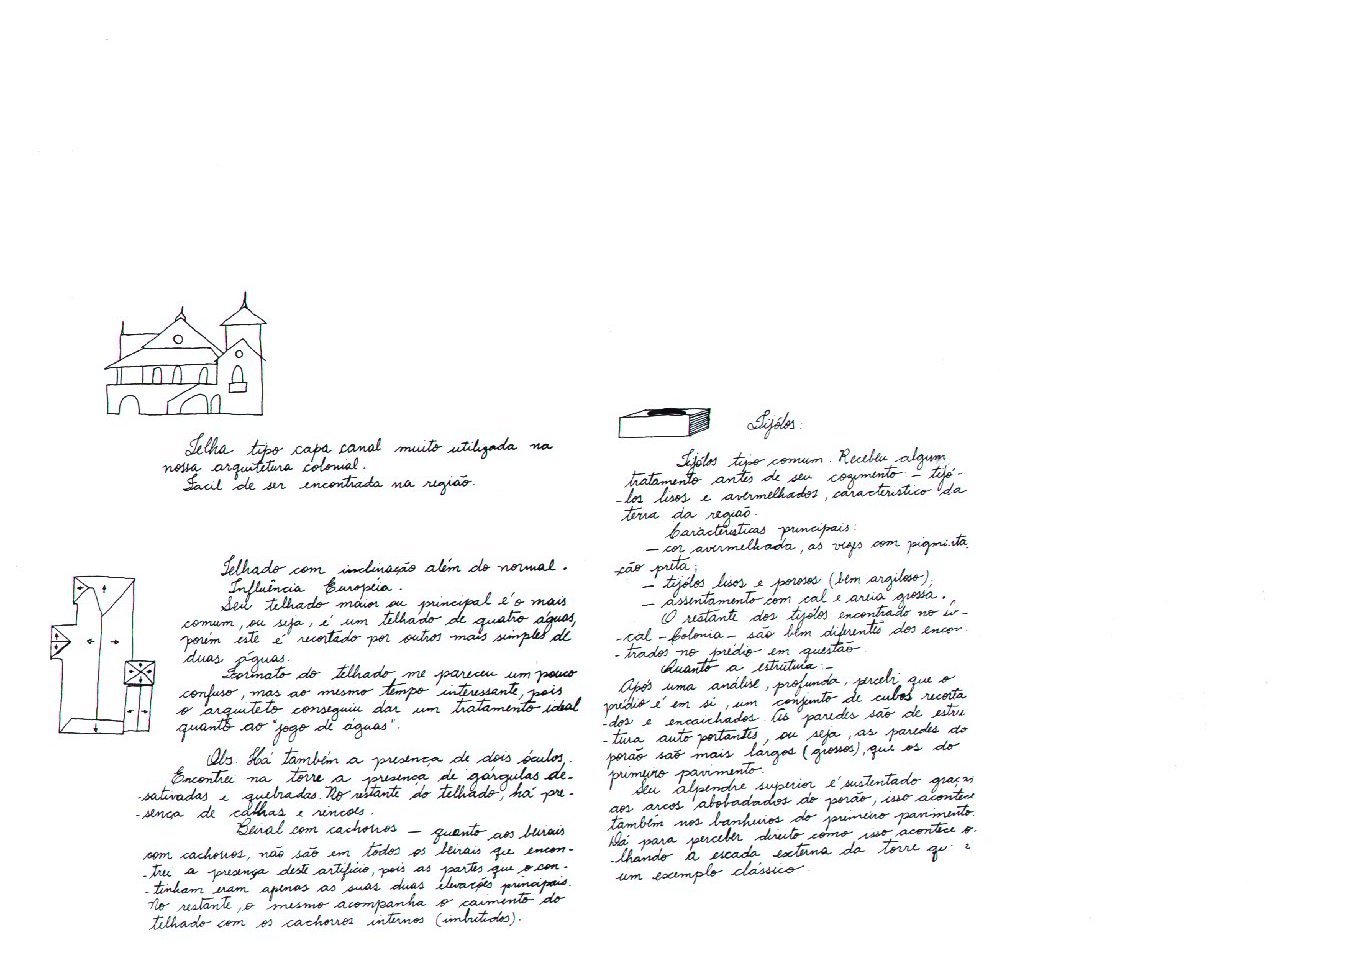 Telha tipo capa canal muito utilizada na
nossa arquitetura colonial.
Facil de ser encontrada na região.
Telhado com inclinação além do normal.
Influência Européia.
Seu telhado maior ou principal é o mais
comum, ou seja, é um telhado de quatro águas,
porém este é recortado por outros mais simples de
duas águas.
Formato do telhado, me pareceu um pouco
confuso, mas ao mesmo tempo interessante, pois
o arquiteto conseguiu dar um tratamento ideal
quanto ao "jogo de águas".
Obs. Há também a presença de dois óculos.
Encontrei na torre a presença de gárgulas de-
-sativadas e quebradas. No restante do telhado, há pre-
-sença de calhas e rincões.
Beiral com cachorros — quanto aos beirais
com cachorros, não são em todos os beirais que encon-
-trei a presença deste artifício, pois as partes que o con-
-tinham eram apenas as suas duas elevações principais.
No restante, o mesmo acompanha o caimento do
telhado com os cachorros internos (imbutidos).
Tijólos:
Tijólos tipo comum. Recebeu algum
tratamento antes de seu cozimento - tijó-
-los lisos e avermelhados, caracteristico da
terra da região.
Caracteristicas principais:
- cor avermelhada, as vezes com pigmenta
ção preta;
- tijólos lisos e porosos (bem argiloso);
- assentamento com cal e areia grossa.
O restante dos tijólos encontrado no lo-
-cal - Colonia - são bem diferentes dos encon-
-trados no prédio em questão.
Quanto a estrutura:-
Após uma análise, profunda, percebi que o
prédio é em si, um conjunto de cubos recorta
-dos e encaichados. As paredes são de estru
-tura auto portantes, ou seja, as paredes do
porão são mais largos (grossos), que os do
primeiro pavimento.
Seu alpendre superior é sustentado graças
aos arcos abobadados do porão, isso acontece
também nos banheiros do primeiro pavimento.
Dá para perceber direito como isso acontece o-
-lhando a escada externa da torre que é
um exemplo clássico.